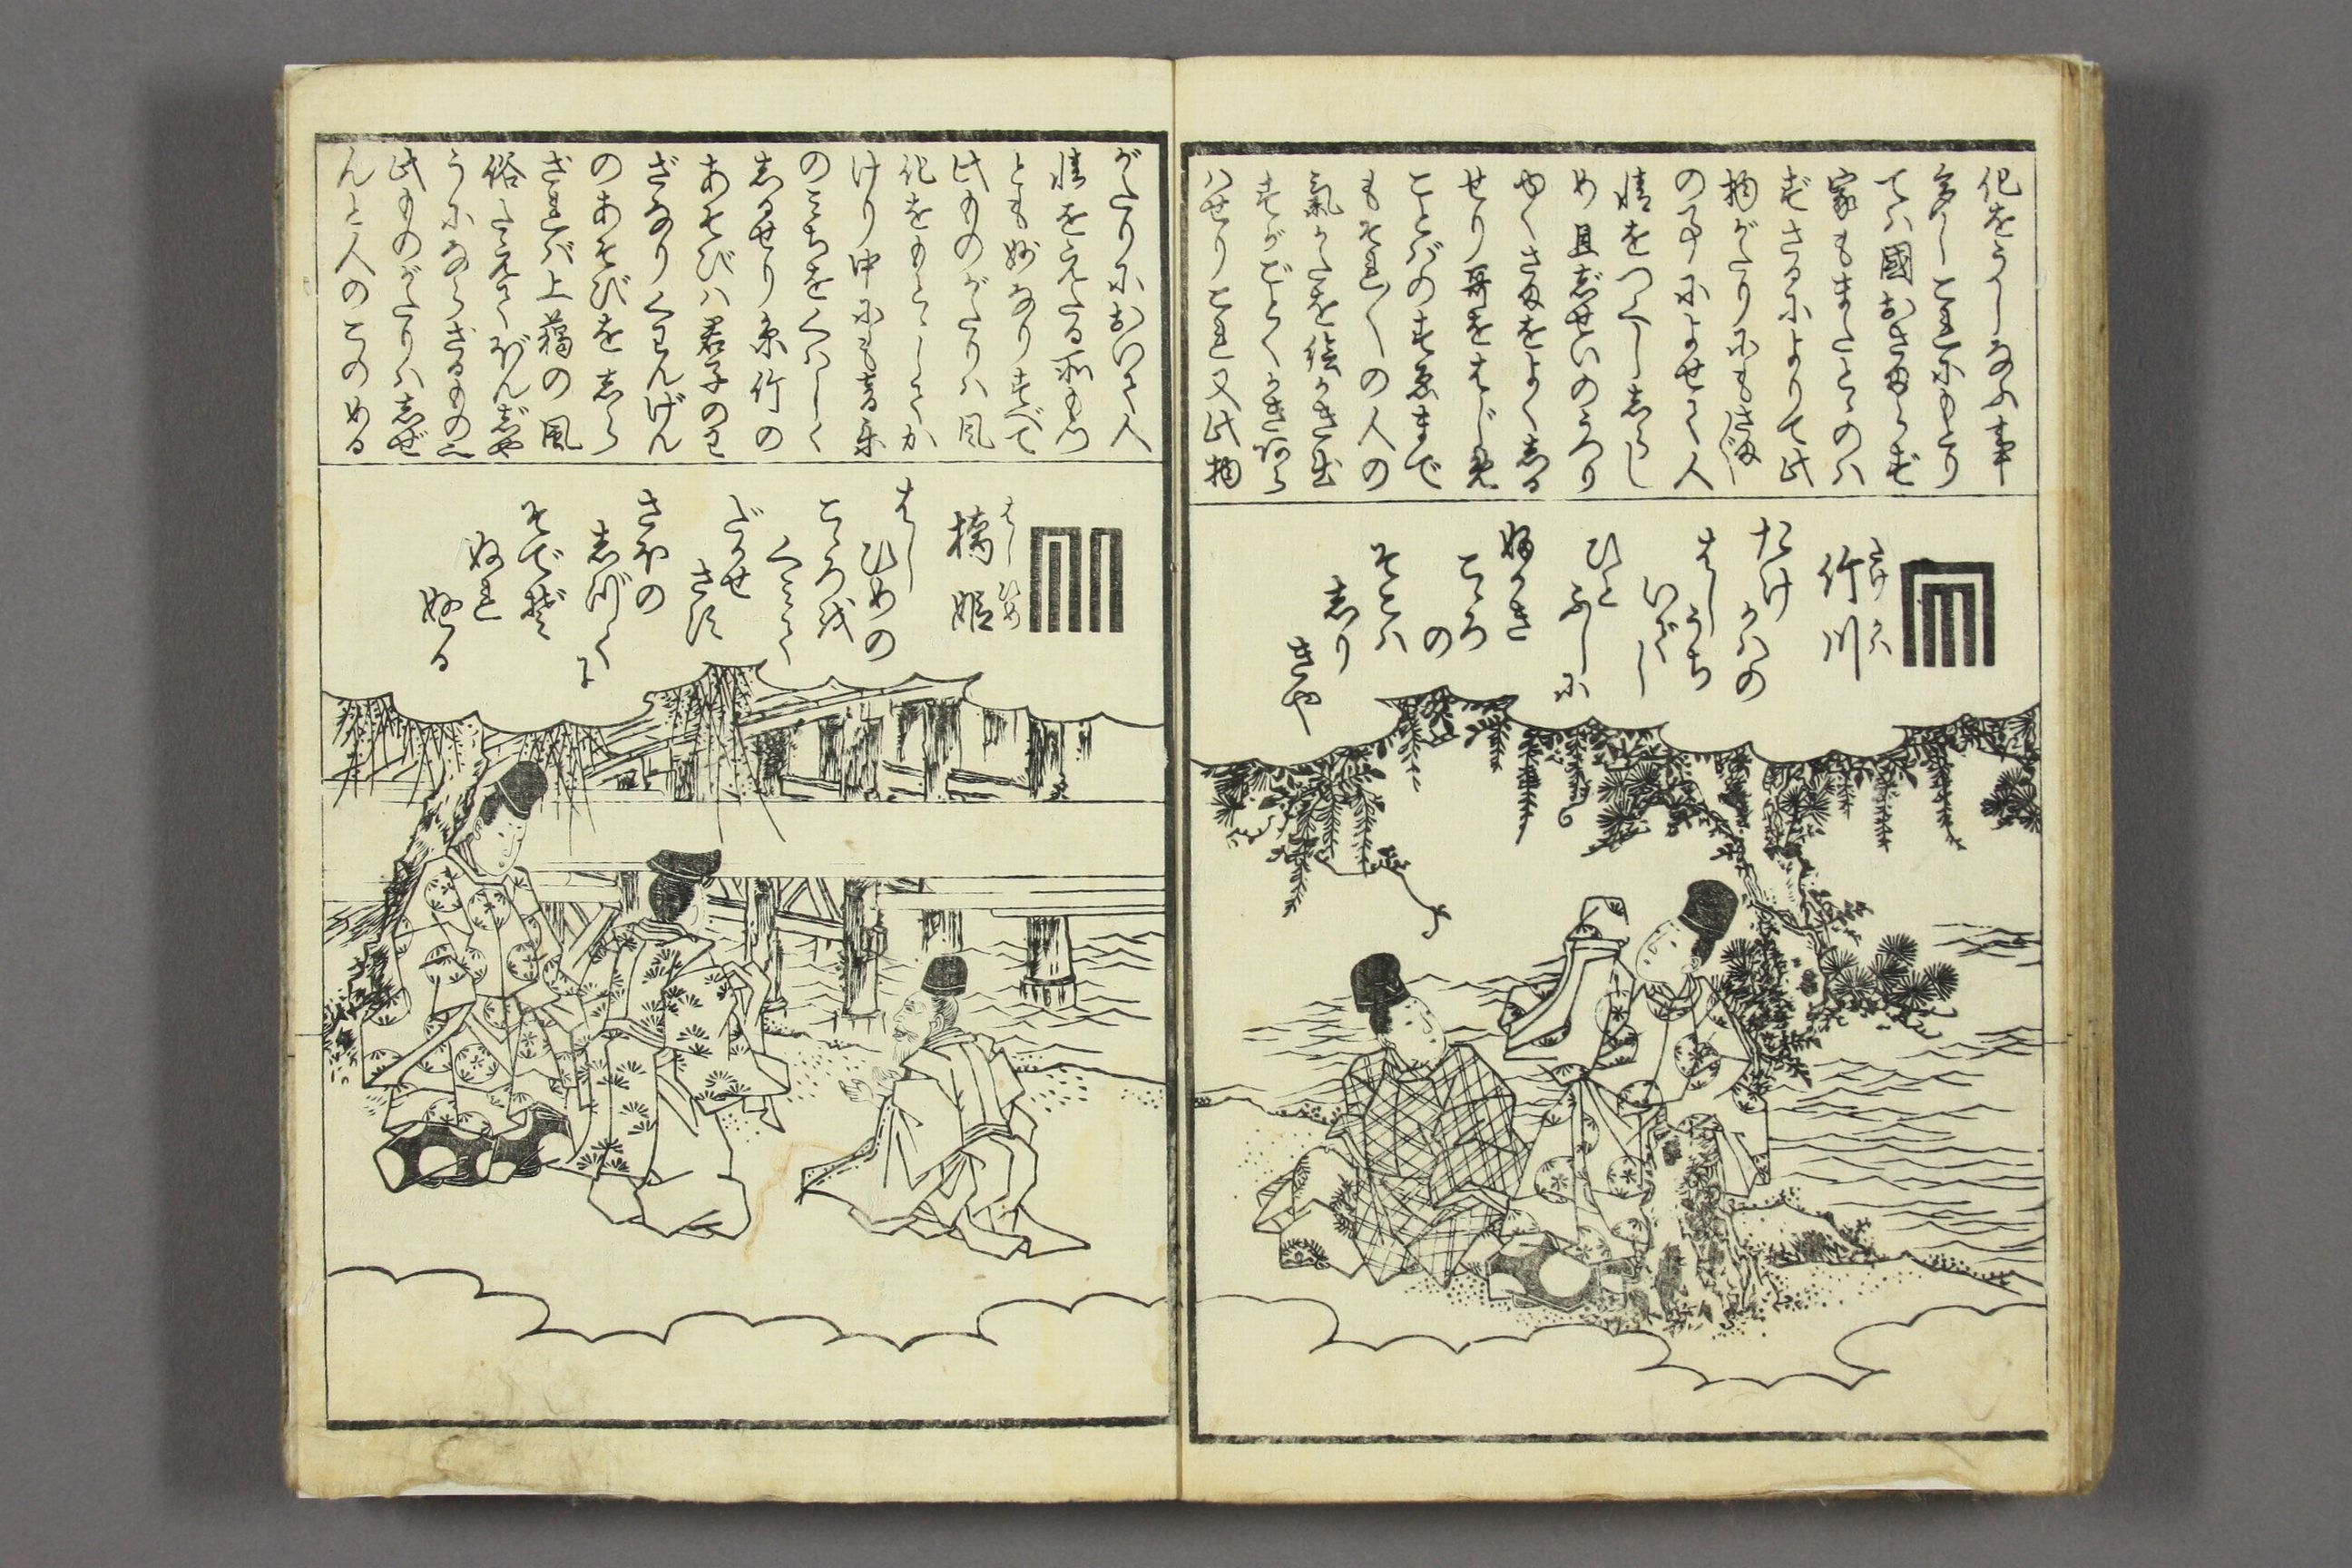 化をうしなふ事
多しこれにもとり
ては國おさまらず
家もまたとゝのは
ずさるによりて此
物がたりにもさま〴〵
の事によせて人
情をつくししらし
め且じせいのうつり
ゆくさまをよくしる
せり哥をはじめ
ことばのすゑまで
もそれ〳〵の人の
氣かたを絵がき出
すがごとくかきあら
はせりこれ又此物
たけかは
竹川
たけかはの
はしうち
いでし
ひと
ふしに
ふかき
こゝろ
の
そこは
しり
きや
がたりにおいて人
情をえたる所もつ
とも妙なりすべて
此ものがたりは風
化をもとゝしてか
けり中にも音楽
のみちをくはしく
しるせり糸竹の
あそびは君子のわ
ざなりくわんげん
のあそびをしら
ざれば上臈の風
俗たえてぼんじや
うにならざるもの也
此ものがたりはしぜ
んと人のこのめる
はしひめ
橋姫
はし
ひめの
こゝろを
くみて
たかせ
さす
さほの
しづく
に
そでぞ
ぬれ
ぬる